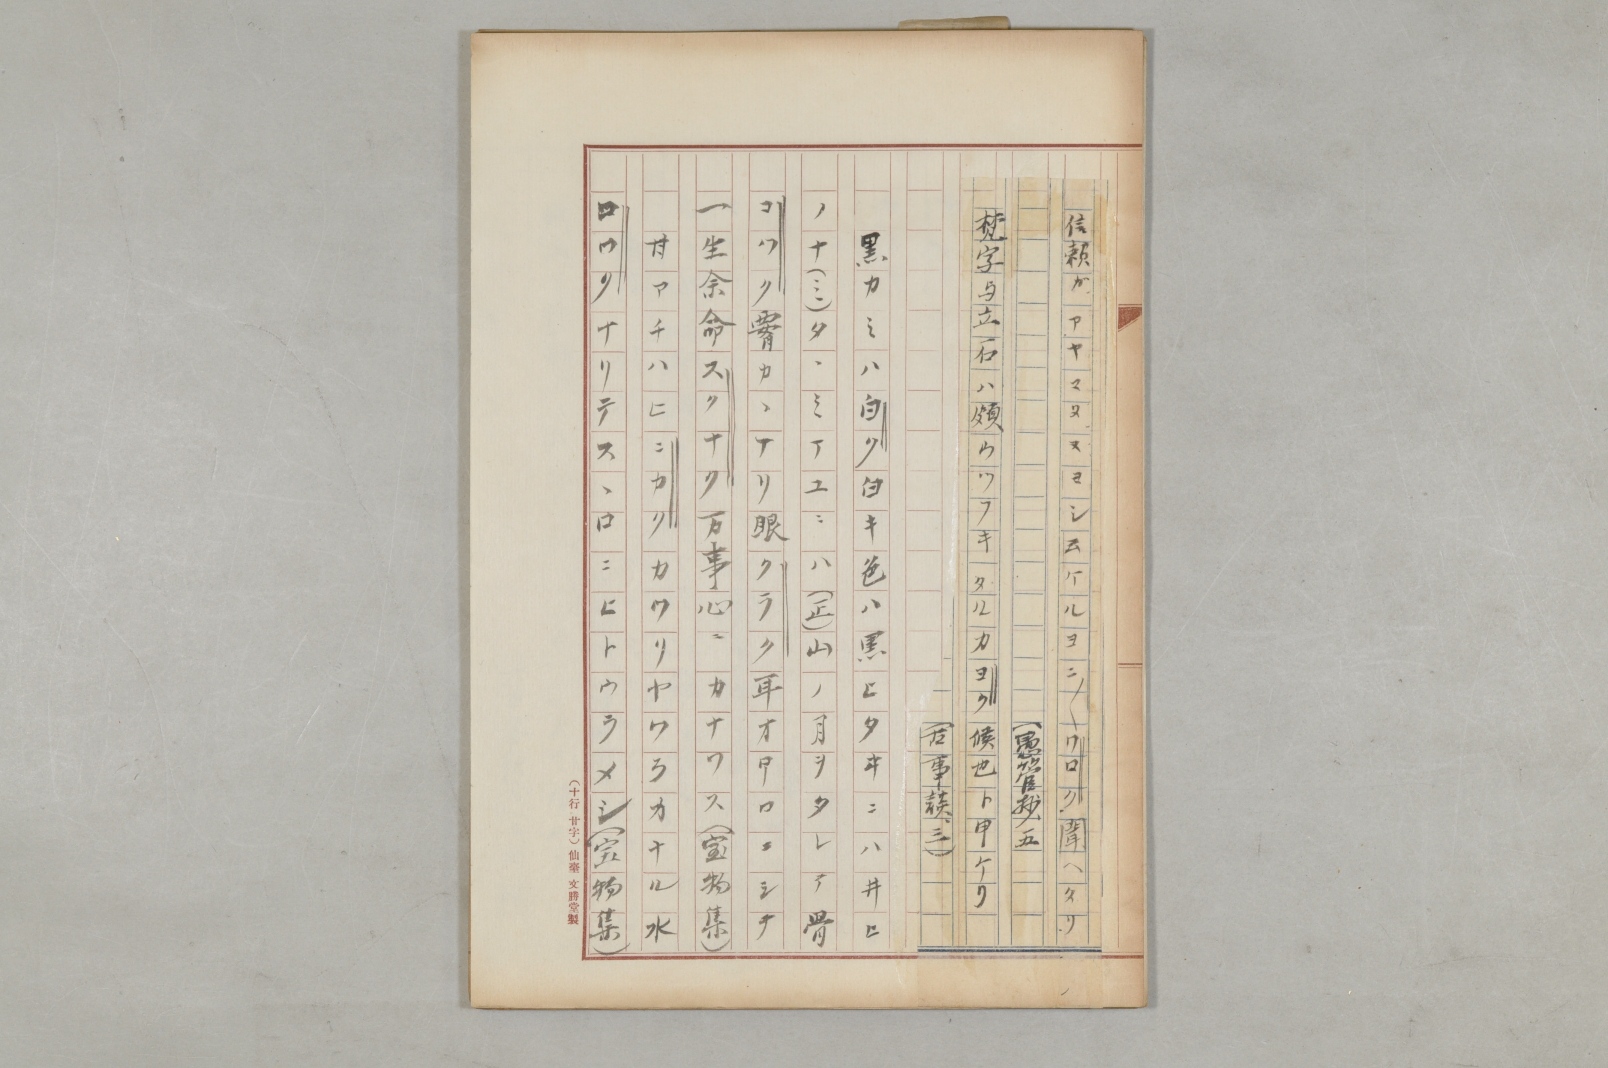 信頼ガアヤマヌヌヨシ云ケルヨニ〳〵ワロク聞ヘタリ
(愚管抄五
梵字与立石ハ頗ウツフキタルカヨク候也ト申ケリ
(古事談、三)
黒カミハ白ク白キ色ハ黒ヒタヰニハ井ヒ
ノナ(ミ)タヽミアユニハ(正)山ノ月ヲタレテ骨
コハク膚カヽナリ眼クラク耳オロロニシテ
一生余命スクナク万事心ニカナワス(宝物集)
甘アチハヒニカクカウリヤワラカナル水
ロウクナリテスヽロニヒトウラメシ(宝物集)
(十行廿字)仙臺文勝堂製